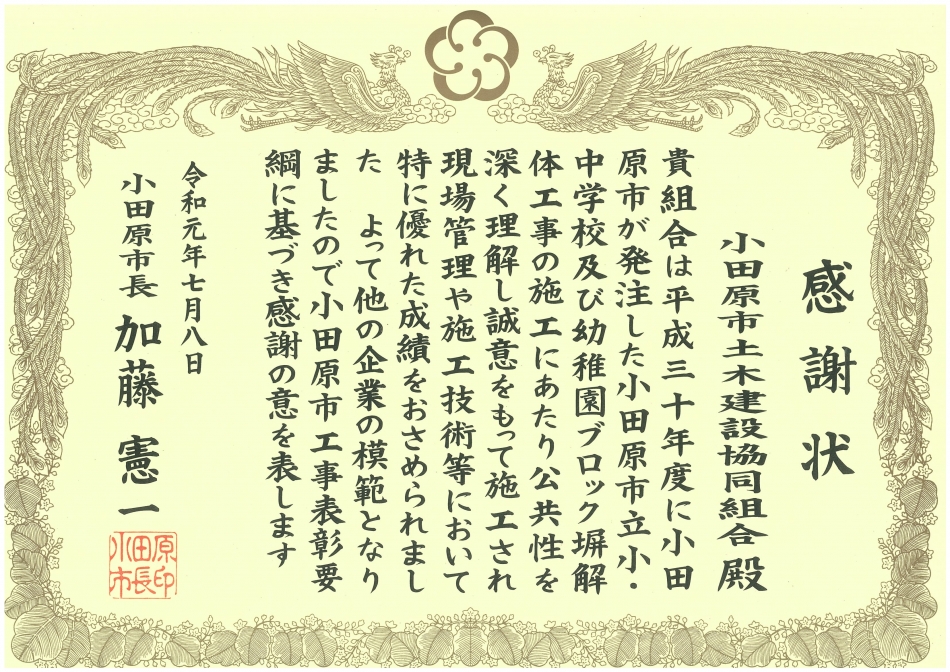 感謝状
小田原市土木建設協同組合殿
貴組合は平成三十年度に小田
原市が発注した小田原市立小・
中学校及び幼稚園ブロック塀解
体工事の施工にあたり公共性を
深く理解し誠意をもって施工され
現場管理や施工技術等において
特に優れた成績をおさめられまし
た　よって他の企業の模範となり
ましたので小田原市工事表彰要
綱に基づき感謝の意を表します
令和元年七月八日
小田原市長　加藤憲一
小田原
市長印